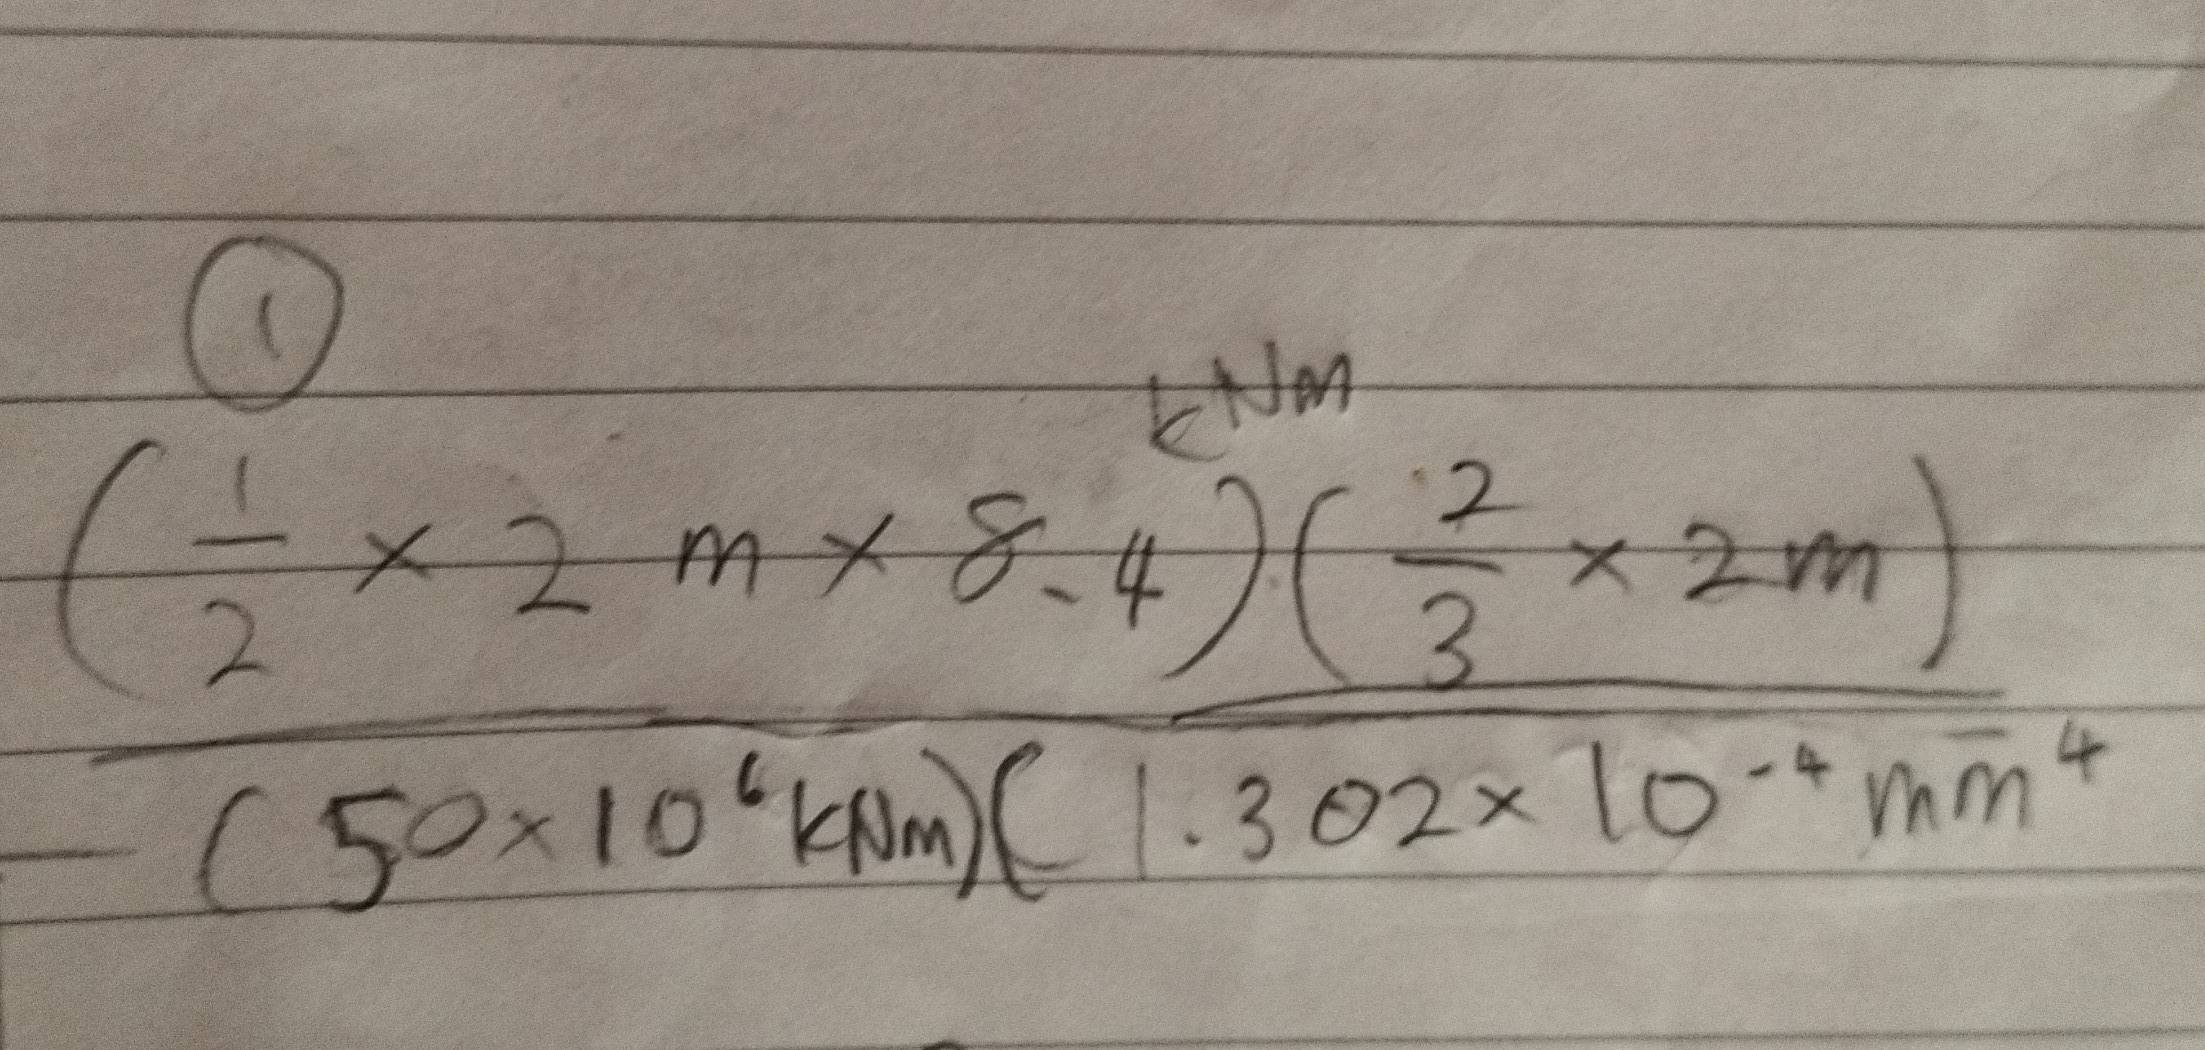 ①
kNm
(1/2 × 2 m × 8.4)(2/3 × 2m)
(50×10⁶ kNm)(1.302×10⁻⁴ mm⁴